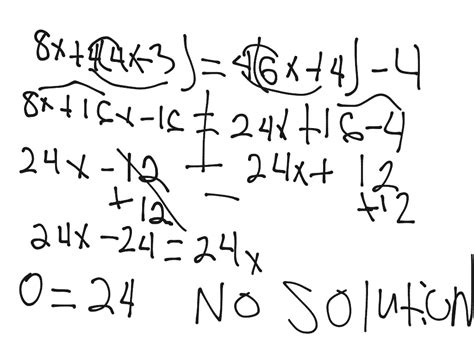 8x+4(4x-3)=4(6x+4)-4
8x+16x-16=24x+16-4
24x-12=24x+12
+12 +12
24x-24=24x
0=24 NO Solution